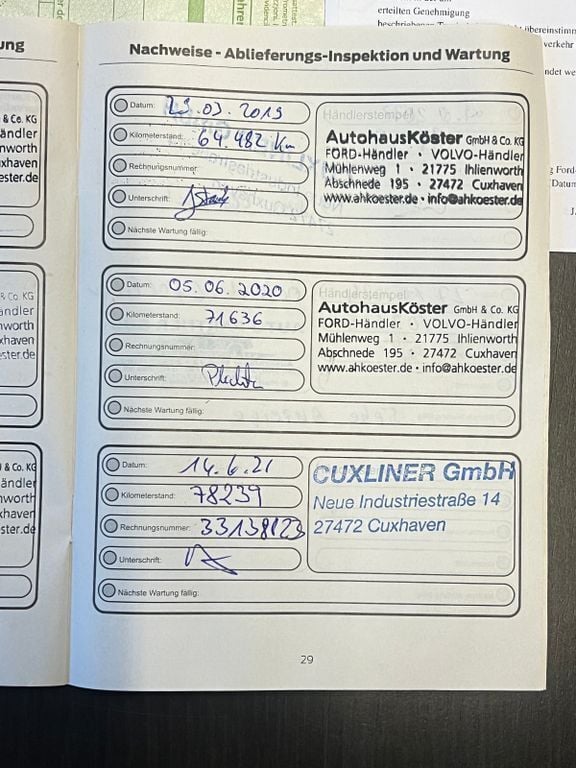 ung
& Co. KG
ändler
nworth
xhaven
ester.de
& Co. KG
ändler
nworth
xhaven
ster.de
& Co. KG
ändler
nworth
xhaven
ster.de
erteilten Genehmigung
übereinstimm
verkehr
Ford-
Datum
Nachweise - Ablieferungs-Inspektion und Wartung
Datum: 29.03.2019
Kilometerstand: 64.482 Km
Rechnungsnummer:
Unterschrift:
Nächste Wartung fällig:
Händlerstempel:
AutohausKöster GmbH & Co. KG
FORD-Händler · VOLVO-Händler
Mühlenweg 1 · 21775 Ihlienworth
Abschnede 195 · 27472 Cuxhaven
www.ahkoester.de · info@ahkoester.de
Datum: 05.06.2020
Kilometerstand: 71636
Rechnungsnummer:
Unterschrift:
Nächste Wartung fällig:
Händlerstempel:
AutohausKöster GmbH & Co. KG
FORD-Händler · VOLVO-Händler
Mühlenweg 1 · 21775 Ihlienworth
Abschnede 195 · 27472 Cuxhaven
www.ahkoester.de · info@ahkoester.de
Datum: 14.6.21
Kilometerstand: 78239
Rechnungsnummer: 33138123
Unterschrift:
Nächste Wartung fällig:
CUXLINER GmbH
Neue Industriestraße 14
27472 Cuxhaven
29